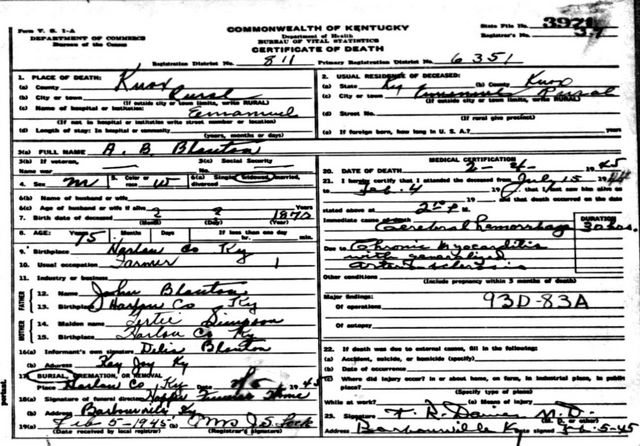 Form V. S. 1-A
COMMONWEALTH OF KENTUCKY
State File No. 3971
DEPARTMENT OF COMMERCE
Department of Health
Bureau of the Census
BUREAU OF VITAL STATISTICS
Registrar's No. 37
CERTIFICATE OF DEATH
Registration District No. 811 Primary Registration District No. 6351
1. PLACE OF DEATH:
(a) County Knox
(b) City or town Rural
(If outside city or town limits, write RURAL)
(c) Name of hospital or institution: Emanuel
(If not in hospital or institution write street number or location)
(d) Length of stay: In hospital or community
(years, months or days)
2. USUAL RESIDENCE OF DECEASED:
(a) State Ky (b) County Knox
(c) City or town Emanuel Rural
(If outside city or town limits, write RURAL)
(d) Street No.
(If rural give precinct)
(e) If foreign born, how long in U. S. A.?
3(a) FULL NAME A. B. Blanton
3(b) If veteran, 3(c) Social Security
Name war No.
4. Sex M 5. Color or race W 6(a) Single, widowed, married, divorced
6(b) Name of husband or wife
6(c) Age of husband or wife if alive Years
7. Birth date of deceased 2 2 1870
(Month) (Day) (Year)
8. AGE: Years 75 Months Days If less than one day
hr. min.
9. Birthplace Harlan Co Ky
10. Usual occupation Farmer
11. Industry or business
FATHER
12. Name John Blanton
13. Harlan Co Ky
MOTHER
14. Maiden name Simpson
15. Harlan Co Ky
16(a) Informant's own signature Delia Blanton
(b) Address Kay Jay Ky
17. BURIAL, CREMATION, OR REMOVAL
Place Harlan Co, Ky Date 1945
18(a) Signature of funeral director Hopper Funeral Home
(b) Address Barbourville Ky
19(a) Feb 5-1945 (b) Mrs J.S. Lock
(Date received by local registrar) (Registrar's signature)
MEDICAL CERTIFICATION
20. DATE OF DEATH 2-4-1945
21. I hereby certify that I attended the deceased from July 15 1944
to Feb. 4, 19 , that I last saw him alive on
19 , and that death occurred on the date
stated above at 2 P. M.
Immediate cause of death
Cerebral hemorrhage
DURATION
Due to Chronic Myocarditis
with generalized
arteriosclerosis
Other conditions
(Include pregnancy within 3 months of death)
Major findings:
Of operations 93D-83A
Of autopsy
22. If death was due to external causes, fill in the following:
(a) Accident, suicide, or homicide (specify)
(b) Date of occurrence
(c) Where did injury occur? In or about home, on farm, in industrial place, in public
place?
While at work? (e) Means of injury
23. Signature M.D.
Address Barbourville Ky 2-5-45